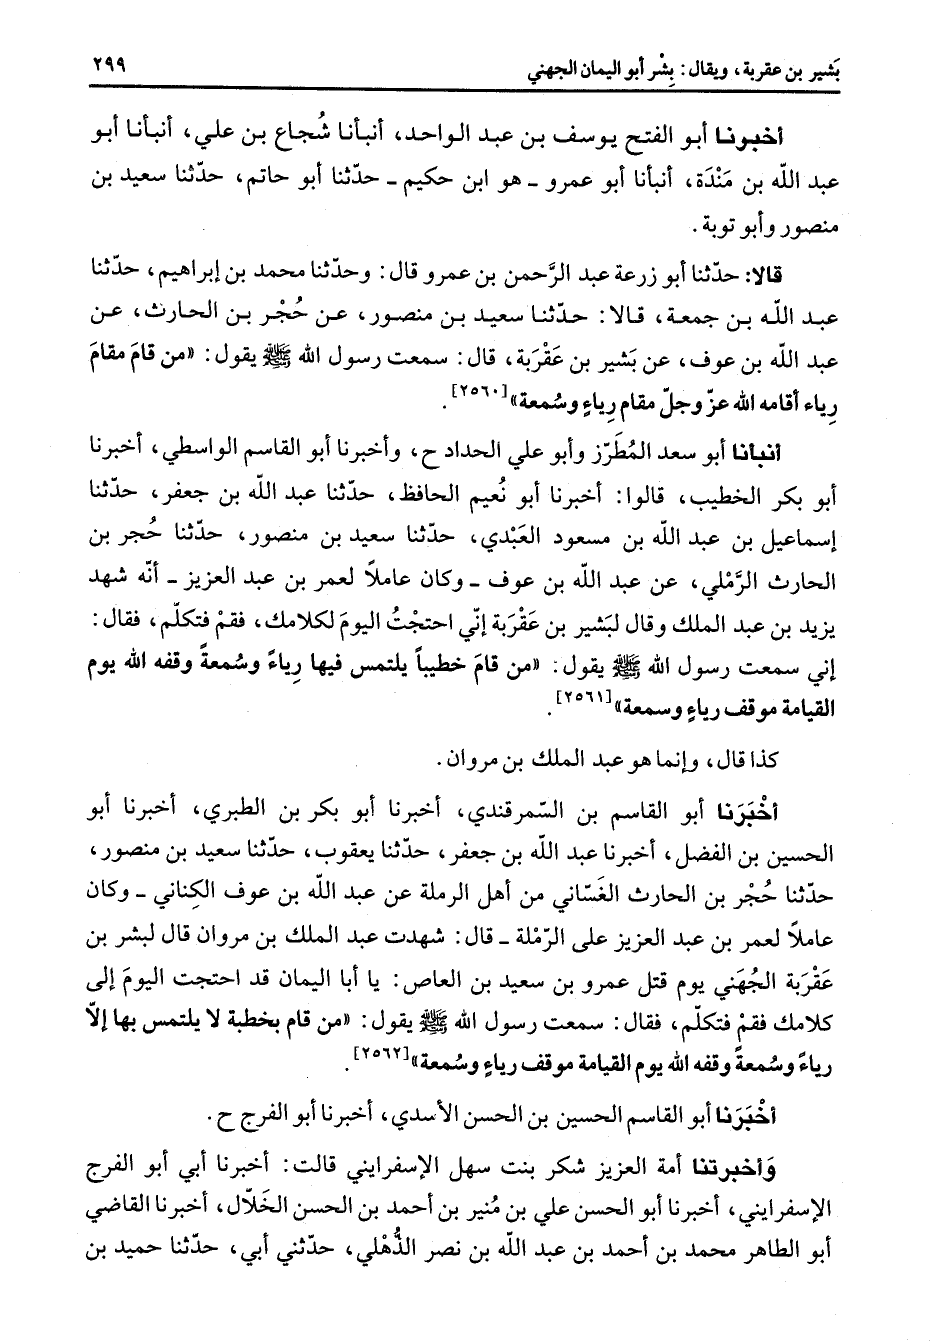 بَشير بن عقربة، ويقال: بِشْر أبو اليمان الجهني ٢٩٩
أخبرنا أبو الفتح يوسف بن عبد الواحد، أنبأنا شُجاع بن علي، أنبأنا أبو
عبد اللّه بن مَنْدَة، أنبأنا أبو عمرو - هو ابن حكيم - حدّثنا أبو حاتم، حدّثنا سعيد بن
منصور وأبو توبة.
قالا: حدّثنا أبو زرعة عبد الرَّحمن بن عمرو قال: وحدّثنا محمد بن إبراهيم، حدّثنا
عبد اللّه بن جمعة، قالا: حدّثنا سعيد بن منصور، عن حُجْر بن الحارث، عن
عبد اللّه بن عوف، عن بَشير بن عَقْرَبة، قال: سمعت رسول الله ﷺ يقول: «من قامَ مقامَ
رِياء أقامه الله عزّ وجلّ مقام رِياءٍ وسُمعة»[٢٥٦٠].
أنبأنا أبو سعد المُطَرّز وأبو علي الحداد ح، وأخبرنا أبو القاسم الواسطي، أخبرنا
أبو بكر الخطيب، قالوا: أخبرنا أبو نُعيم الحافظ، حدّثنا عبد اللّه بن جعفر، حدّثنا
إسماعيل بن عبد اللّه بن مسعود العَبْدي، حدّثنا سعيد بن منصور، حدّثنا حُجر بن
الحارث الرَّمْلي، عن عبد اللّه بن عوف - وكان عاملاً لعمر بن عبد العزيز - أنّه شهد
يزيد بن عبد الملك وقال لبَشير بن عَقْرَبة إنّي احتجْتُ اليومَ لكلامك، فقمْ فتكلّم، فقال:
إني سمعت رسول اللّه ﷺ يقول: «من قامَ خطيباً يلتمس فيها رِياءً وسُمعةً وقفه اللّه يوم
القيامة موقف رياءٍ وسمعة»[٢٥٦١].
كذا قال، وإنما هو عبد الملك بن مروان.
أخْبَرَنا أبو القاسم بن السّمرقندي، أخبرنا أبو بكر بن الطبري، أخبرنا أبو
الحسين بن الفضل، أخبرنا عبد اللّه بن جعفر، حدّثنا يعقوب، حدّثنا سعيد بن منصور،
حدّثنا حُجْر بن الحارث الغَسّاني من أهل الرملة عن عبد اللّه بن عوف الكِناني - وكان
عاملاً لعمر بن عبد العزيز على الرّمْلة - قال: شهدت عبد الملك بن مروان قال لبشر بن
عَقْرَبة الجُهَني يوم قتل عمرو بن سعيد بن العاص: يا أبا اليمان قد احتجت اليومَ إلى
كلامك فقمْ فتكلّم، فقال: سمعت رسول اللّه ﷺ يقول: «من قام بخطبة لا يلتمس بها إلّا
رياءً وسُمعةً وقفه الله يوم القيامة موقف رياءٍ وسُمعة»[٢٥٦٢].
أخْبَرَنا أبو القاسم الحسين بن الحسن الأسدي، أخبرنا أبو الفرج ح.
وَأخبرتنا أمة العزيز شكر بنت سهل الإسفرايني قالت: أخبرنا أبي أبو الفرج
الإسفرايني، أخبرنا أبو الحسن علي بن مُنير بن أحمد بن الحسن الخَلّال، أخبرنا القاضي
أبو الطاهر محمد بن أحمد بن عبد اللّه بن نصر الذُّهْلي، حدّثني أبي، حدّثنا حميد بن